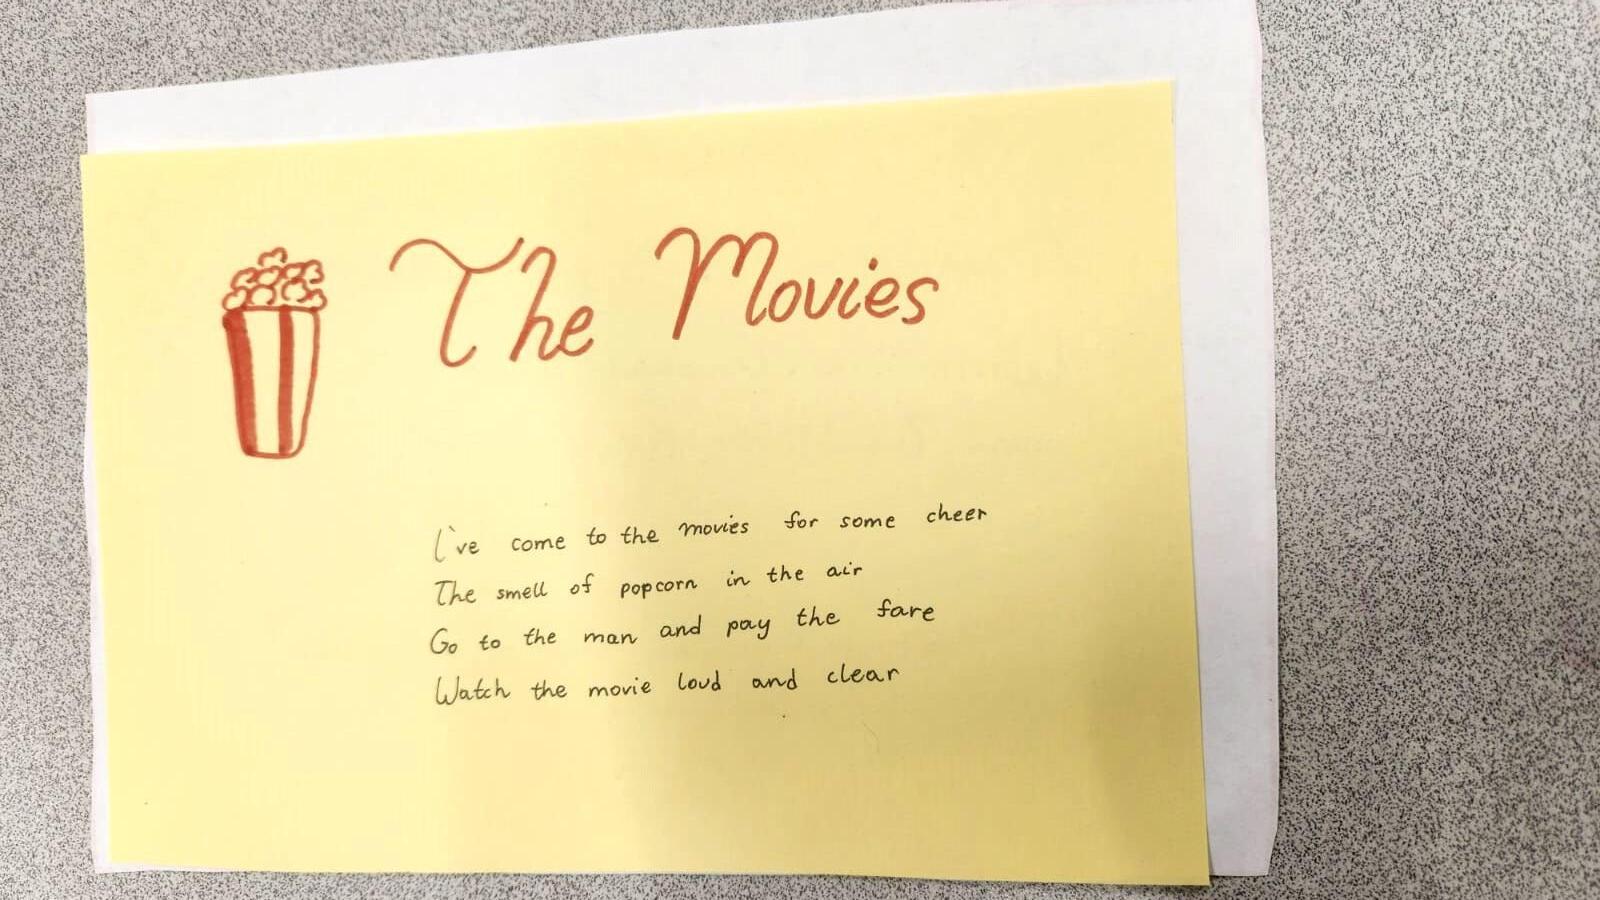 The Movies
I've come to the movies for some cheer
The smell of popcorn in the air
Go to the man and pay the fare
Watch the movie loud and clear